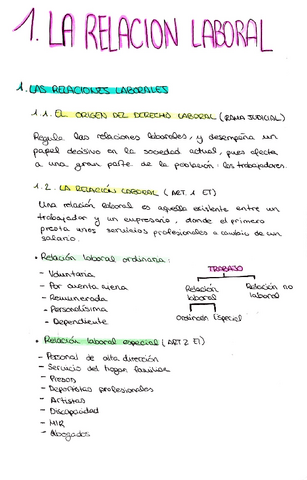 1. LA RELACION LABORAL
1. LAS RELACIONES LABORALES
1.1. EL ORIGEN DEL DERECHO LABORAL (RAMA JUDICIAL)
Regula las relaciones laborales, y desempeña un
papel decisivo en la sociedad actual, pues afecta
a una gran parte de la población: los trabajadores.
1.2. LA RELACIÓN LABORAL (ART. 1 ET)
Una relación laboral es aquella existente entre un
trabajador y un empresario, donde el primero
presta unos servicios profesionales a cambio de un
salario.
• Relación laboral ordinaria:
- Voluntaria
- Por cuenta ajena
- Remunerada
- Personalísima
- Dependiente
TRABAJO
Relación laboral
Relación no laboral
Ordinaria Especial
• Relación laboral especial (ART 2 ET)
- Personal de alta dirección
- Servicio del hogar familiar
- Presos
- Deportistas profesionales
- Artistas
- Discapacidad
- MIR
- Abogados